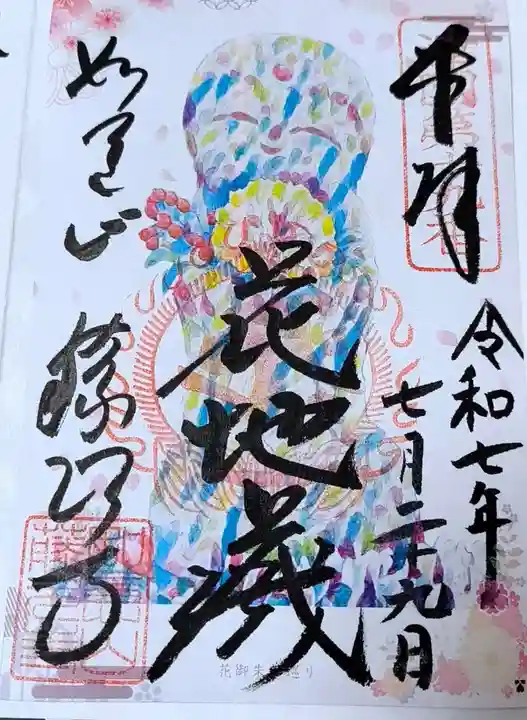 奉拝
令和七年
七月二十九日
花地蔵
如意山
藤次寺
花御朱印巡り